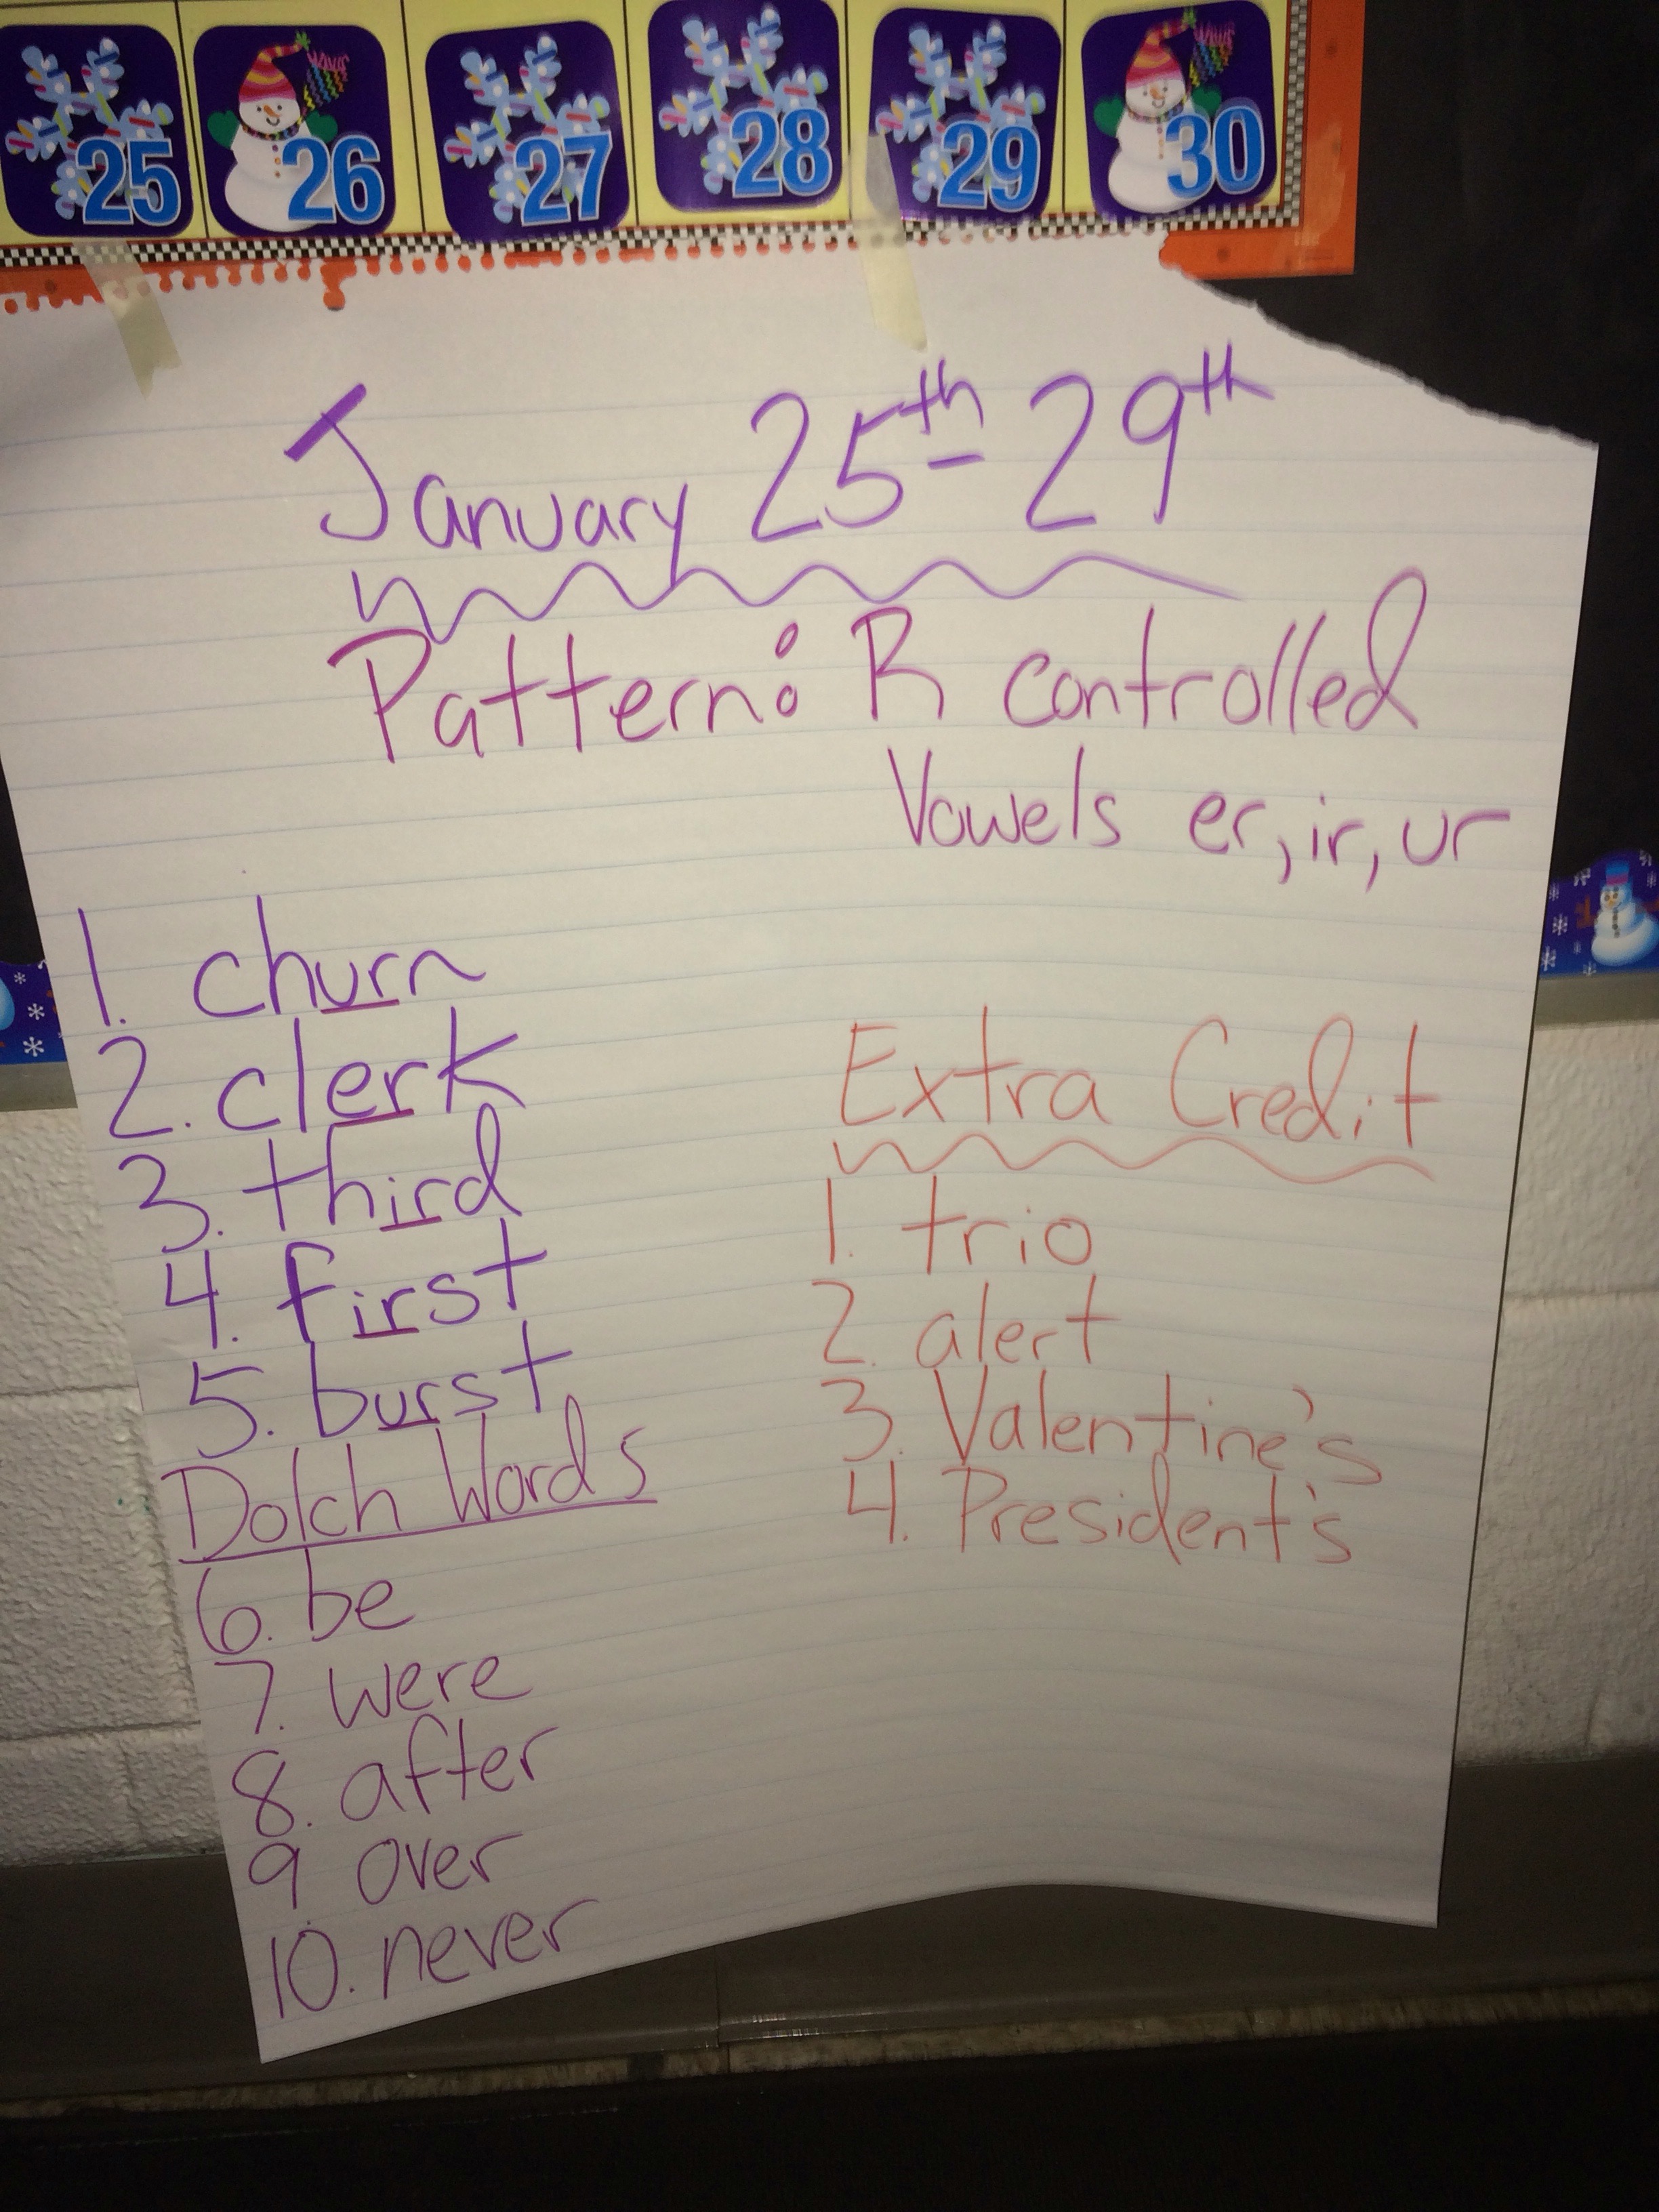 25 26 27 28 29 30
January 25th - 29th
Pattern: R controlled
Vowels er, ir, ur
1. churn
2. clerk
3. third
4. first
5. burst
Dolch Words
6. be
7. were
8. after
9 over
10. never
Extra Credit
1. trio
2. alert
3. Valentine's
4. President's